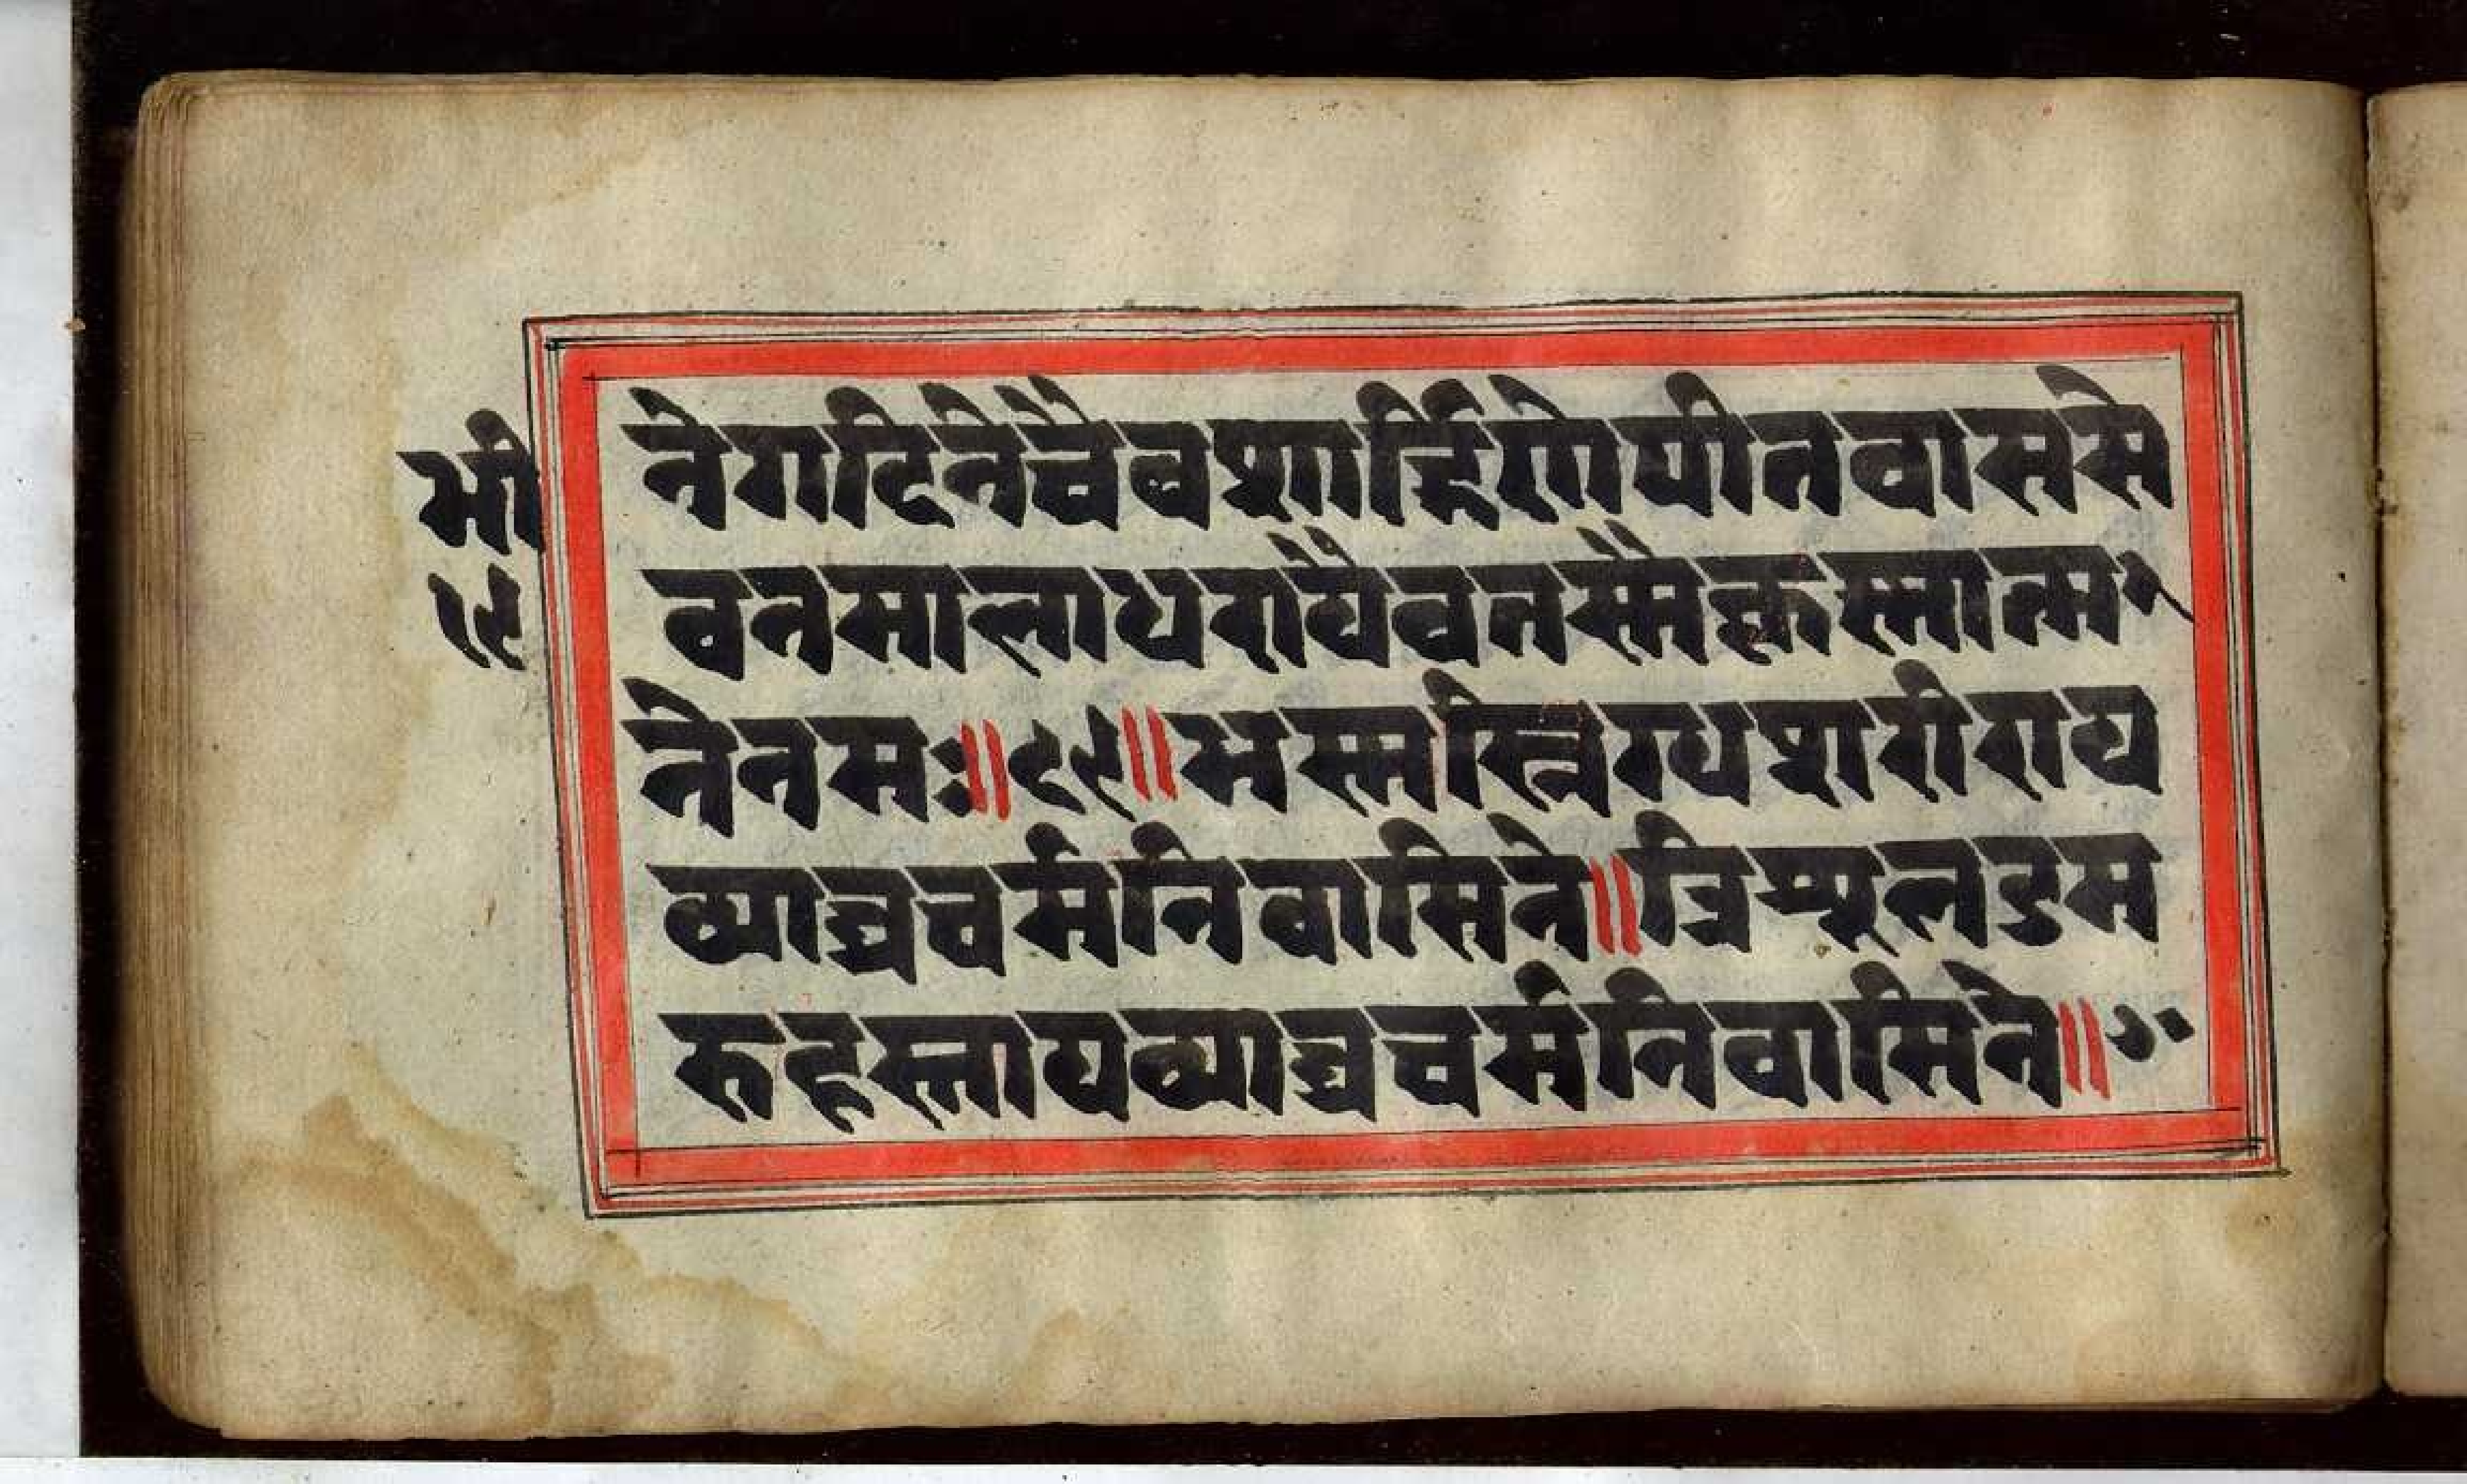 भी
१९
नेगदिनेचैवशार्ङ्गिणेपीतवाससे
वनमालाधरायैवतस्मैकृस्नात्म॰
नेनमः॥६९॥भस्मस्निग्धशरीराय
व्याघ्रचर्मनिवासिने॥त्रिशूलडम
रुहस्तायव्याघ्रचर्मनिवासिने॥७॰